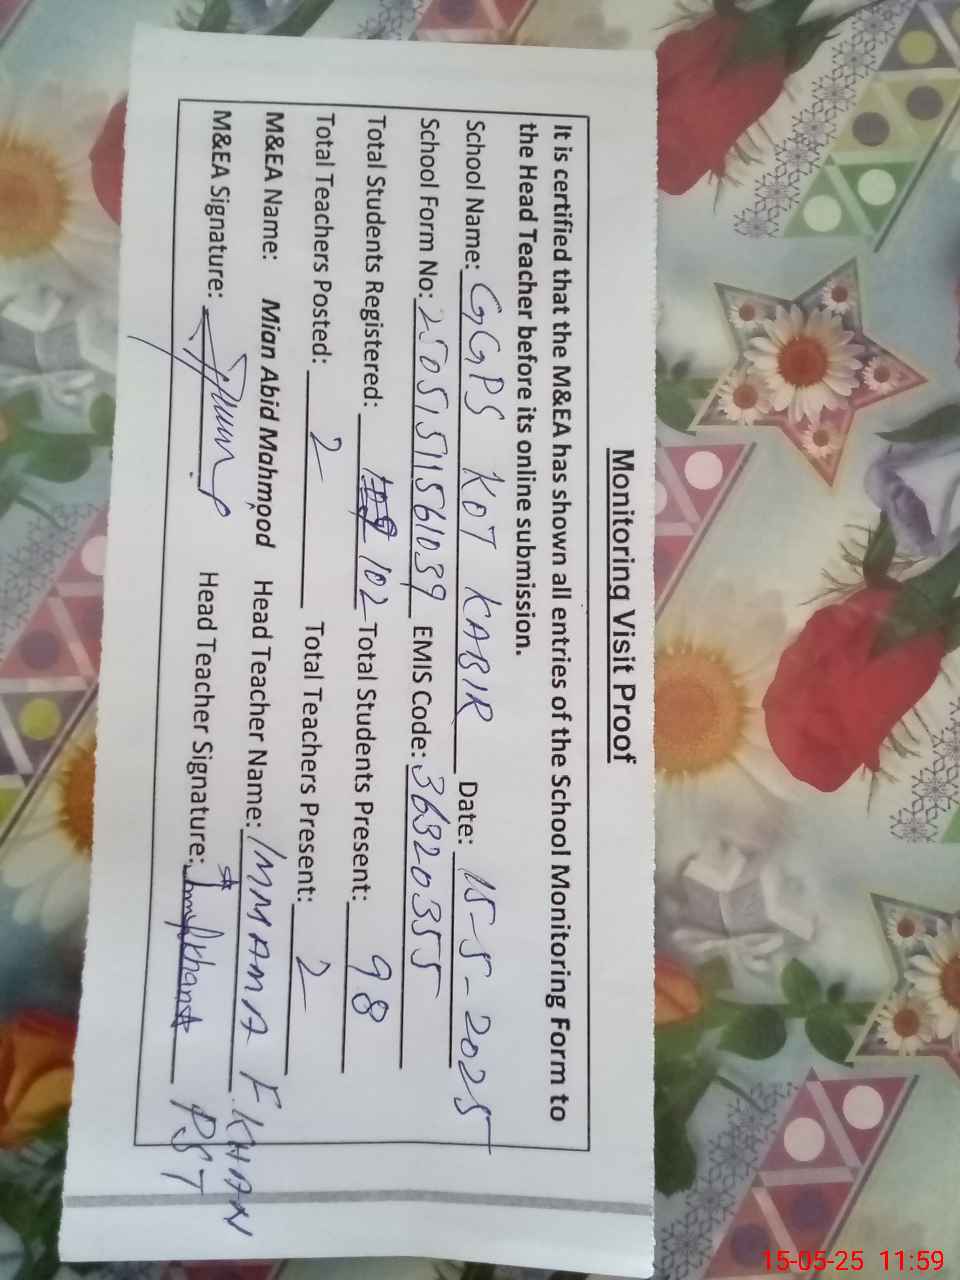 Monitoring Visit Proof
It is certified that the M&EA has shown all entries of the School Monitoring Form to
the Head Teacher before its online submission.
School Name: GGPS KOT KABIR Date: 15-5-2025
School Form No: 25051511561039 EMIS Code: 36320355
Total Students Registered: 102 Total Students Present: 98
Total Teachers Posted: 2 Total Teachers Present: 2
M&EA Name: Mian Abid Mahmood Head Teacher Name: IMMAMA F. KHAN
M&EA Signature: Head Teacher Signature: PST
15-05-25 11:59